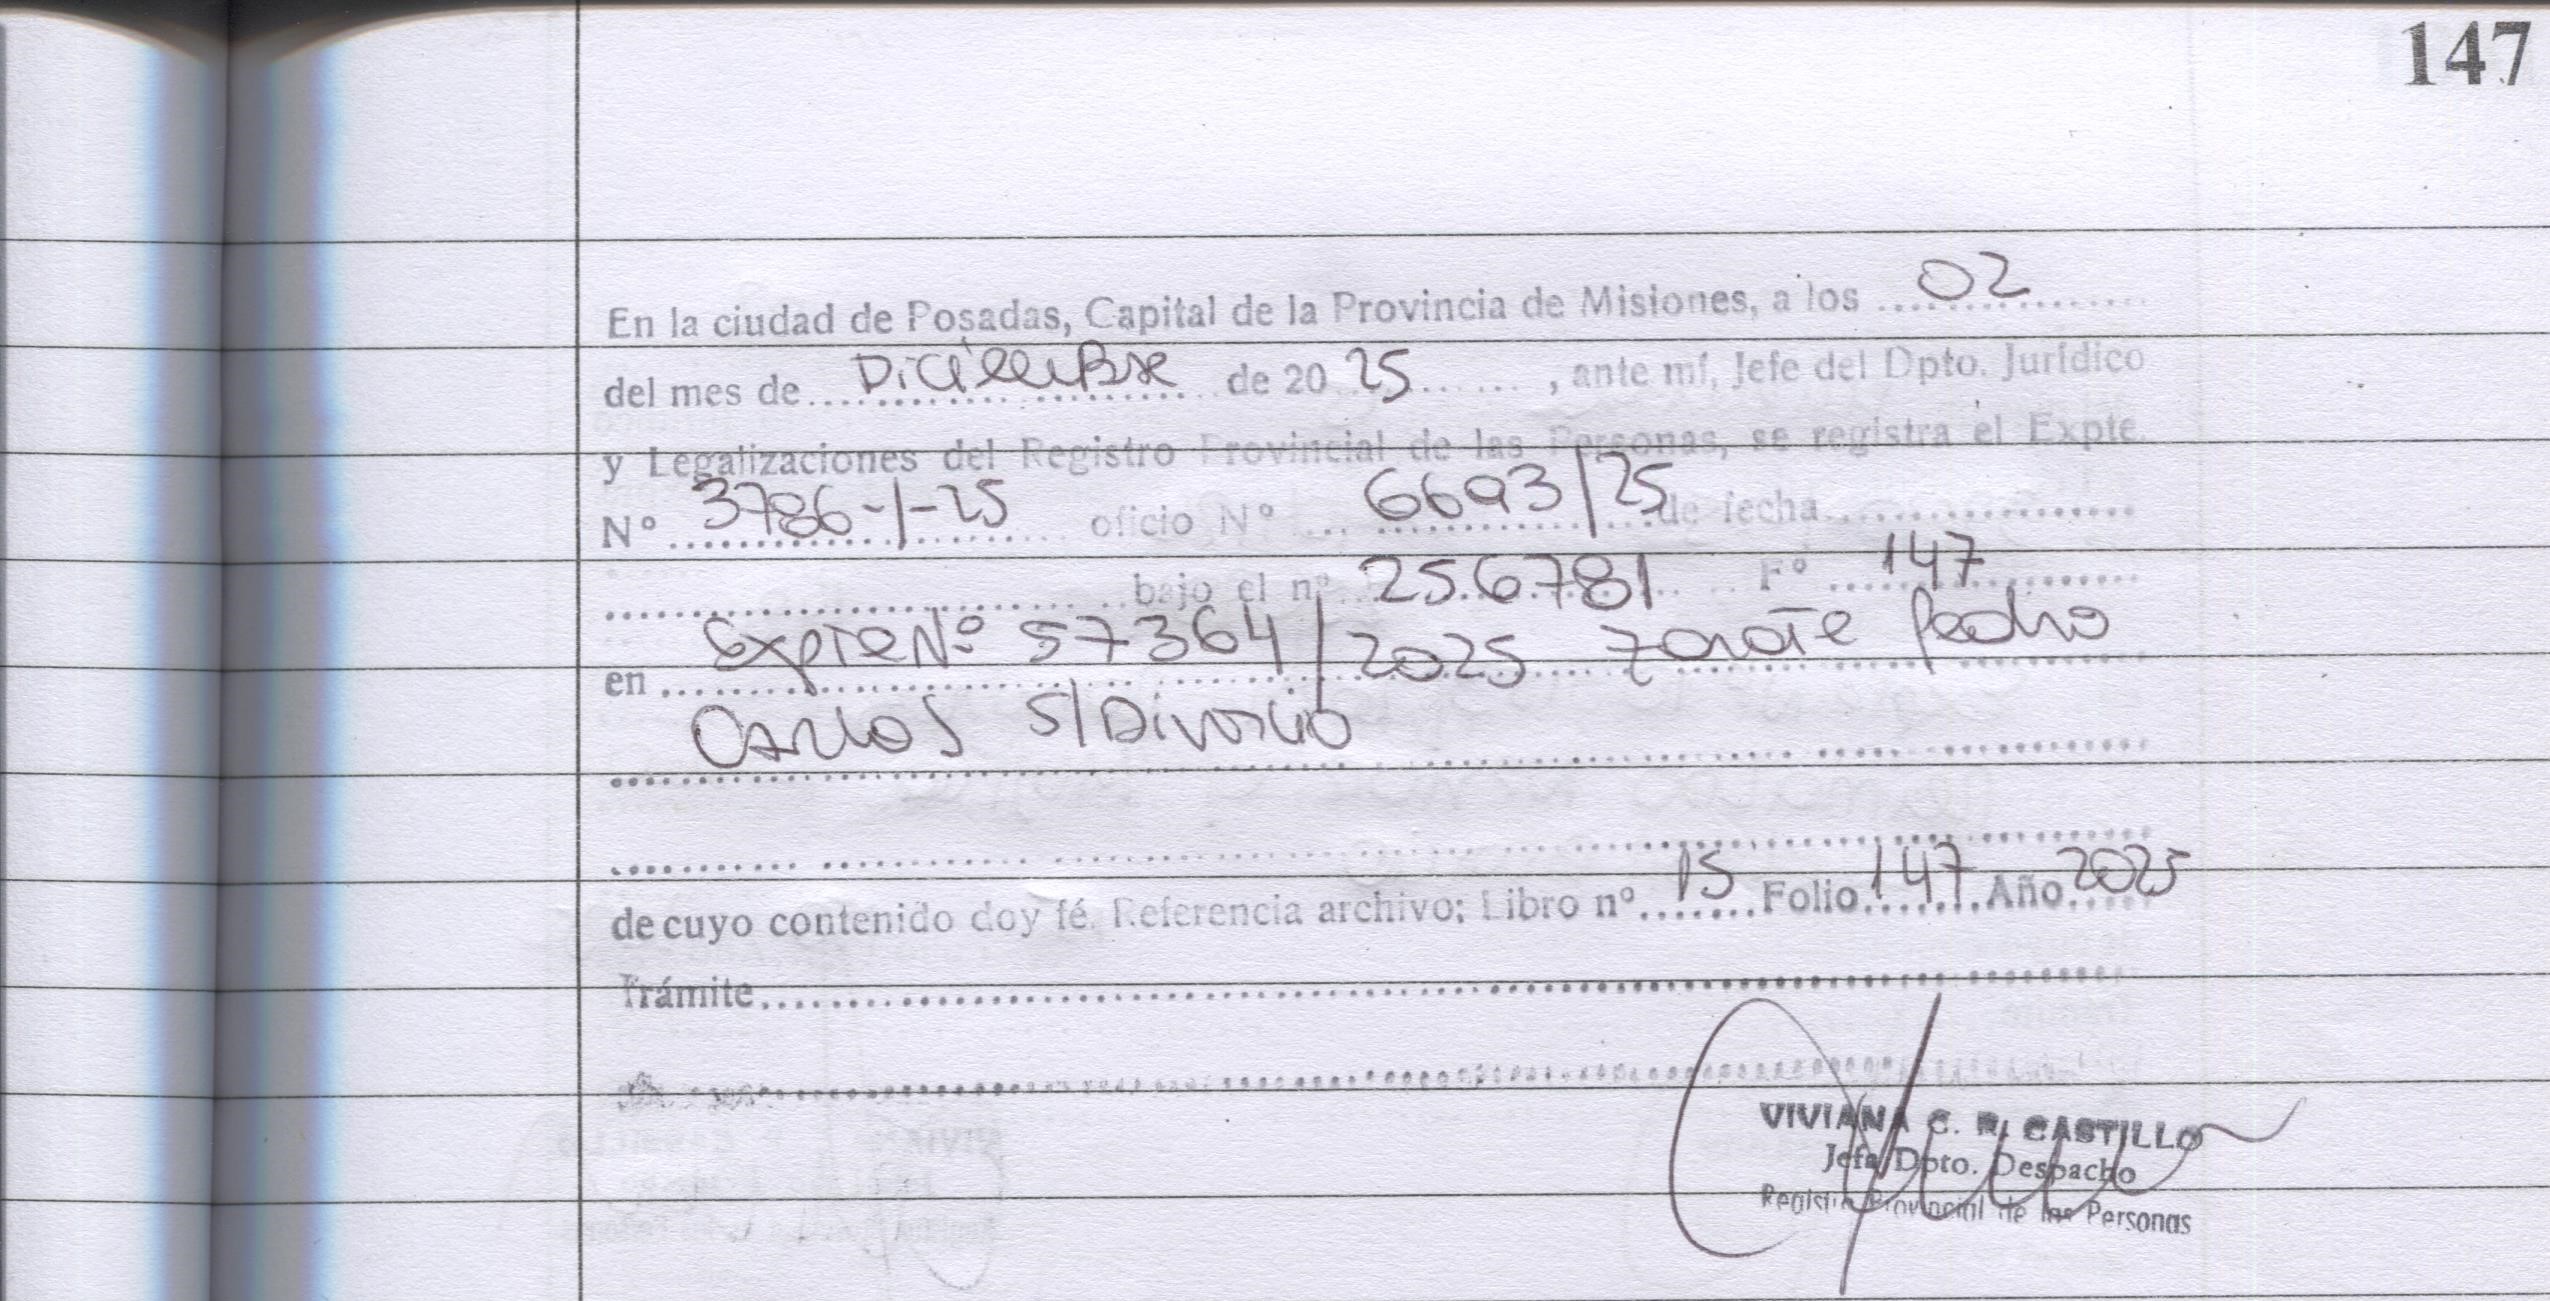 147
En la ciudad de Posadas, Capital de la Provincia de Misiones, a los 02
del mes de Diciembre de 20 25, ante mí, Jefe del Dpto. Jurídico
y Legalizaciones del Registro Provincial de las Personas, se registra el Expte.
Nº 3786-1-25 oficio Nº 6693/25 de fecha
bajo el nº 25.6781 Fº 147
en Expte Nº 57364/2025 Zarate Pedro
Carlos S/Divorcio
de cuyo contenido doy fé. Referencia archivo; Libro nº 15 Folio 147 Año 2025
Trámite
VIVIANA C. R. CASTILLO
Jefa Dpto. Despacho
Registro Provincial de las Personas